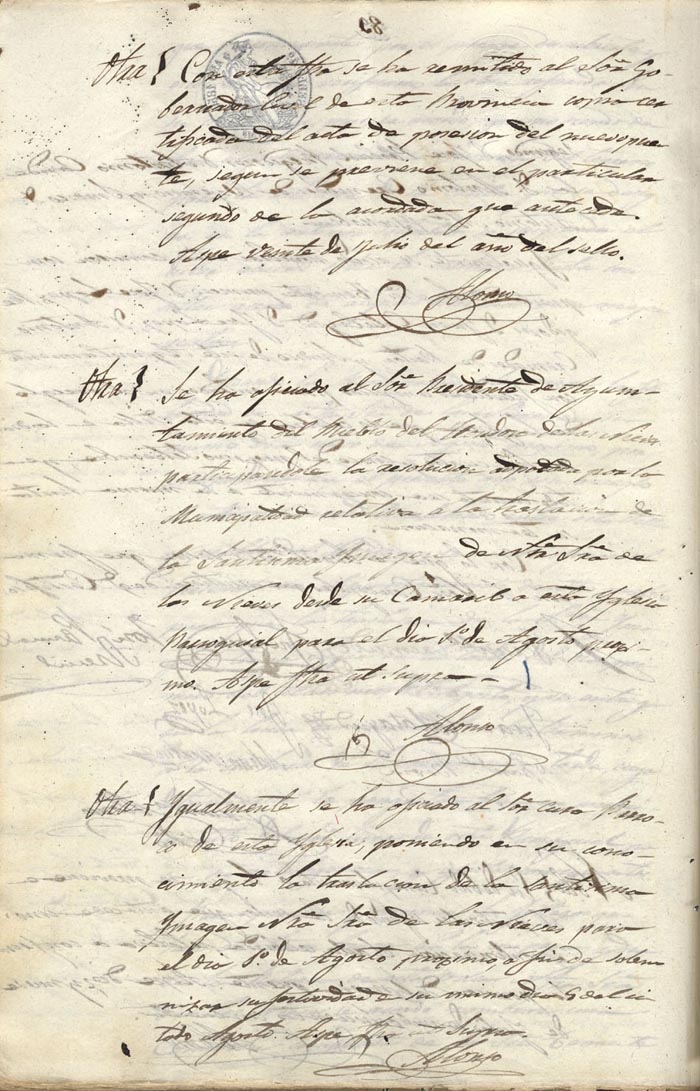 Otra} Con esta fha se ha remitido al Sõr Go-
bernador Civil de esta Provincia copia cer
tificada del acta de posesion del nuevo
te, segun se previene en el particular
segundo de la acordada que antecede.
Aspe veinte de Julio del año del sello.
Alonso
Otra} Se ha oficiado al Sõr Presidente de Ayun-
tamiento del Pueblo del Hondon de las Nieves
participandole la resolucion por la
Municipalidad relativa a la traslacion de
la Santisima Imagen de Ntrã Srã de
las Nieves desde su Camaril a esta Yglesia
Parroquial para el dia 1º de Agosto proxi-
mo. Aspe fha ut supra-
Alonso
Otra} Ygualmente se ha oficiado al Sõr cura Parro-
co de esta Yglesia, poniendo en su cono-
cimiento la traslacion de la Santisima
Ymagen Ntrã Srã de las Nieves para
el dia 1º de Agosto proximo, a fin de solem
nizar su festividad de su mismo dia 5 del ci
tado Agosto. Aspe fha ut Supra.
Alonso